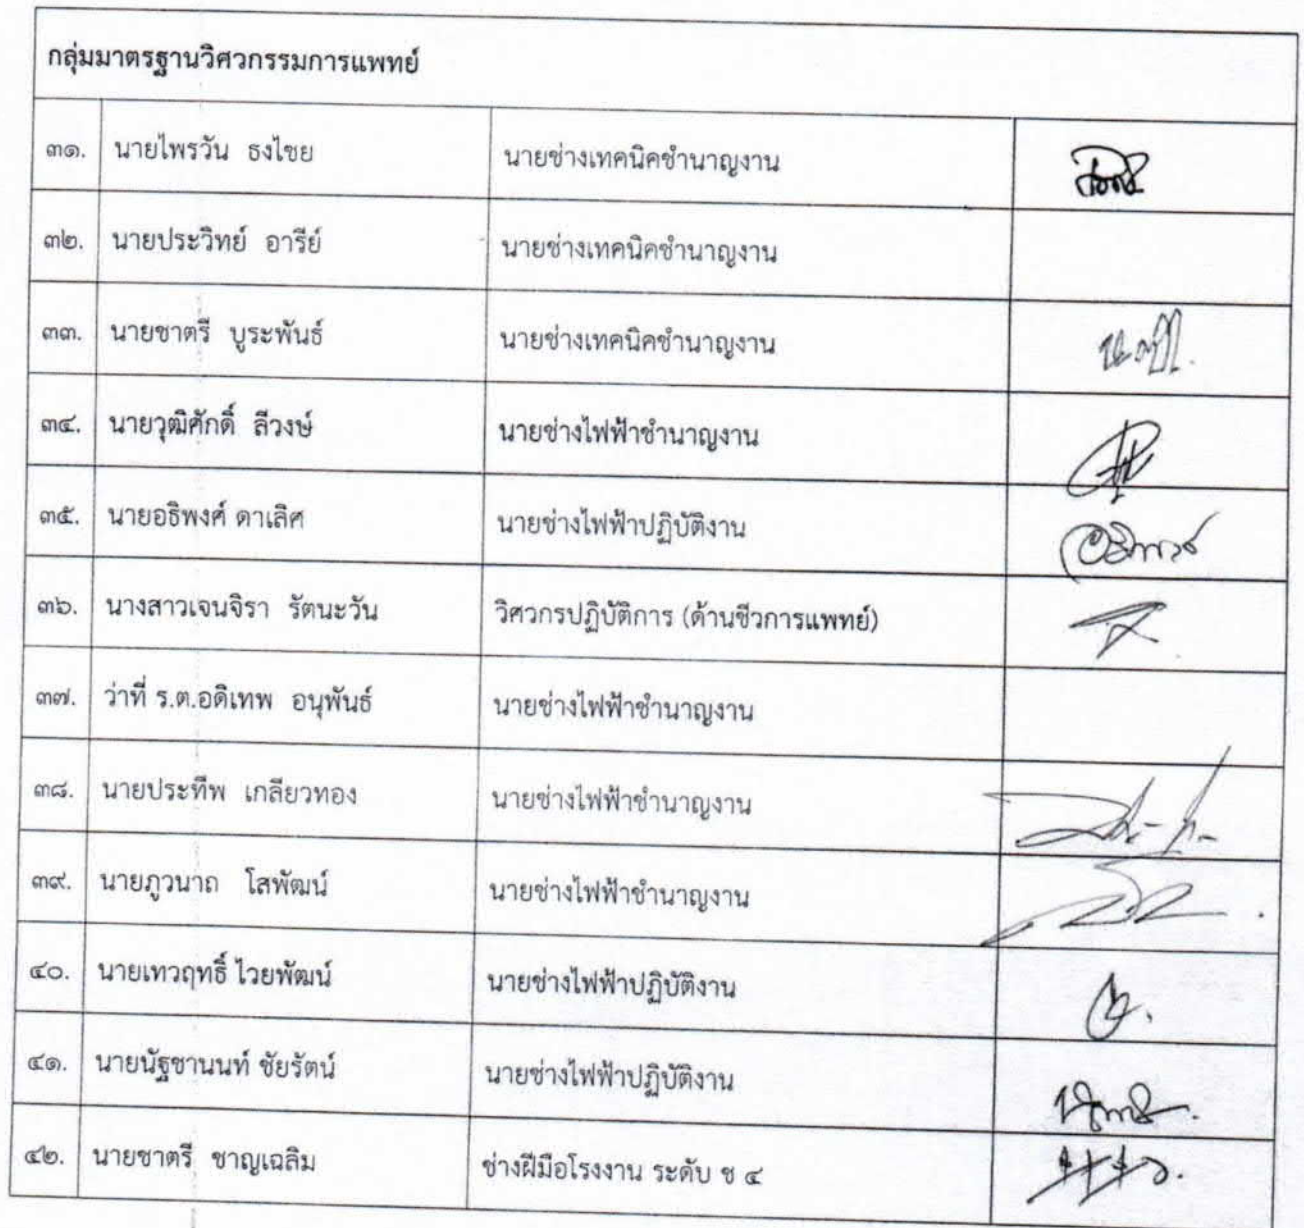 กลุ่มมาตรฐานวิศวกรรมการแพทย์
๓๑. นายไพรวัน ธงไชย นายช่างเทคนิคชำนาญงาน
๓๒. นายประวิทย์ อารีย์ นายช่างเทคนิคชำนาญงาน
๓๓. นายชาตรี บูระพันธ์ นายช่างเทคนิคชำนาญงาน
๓๔. นายวุฒิศักดิ์ ลีวงษ์ นายช่างไฟฟ้าชำนาญงาน
๓๕. นายอธิพงศ์ ดาเลิศ นายช่างไฟฟ้าปฏิบัติงาน
๓๖. นางสาวเจนจิรา รัตนะวัน วิศวกรปฏิบัติการ (ด้านชีวการแพทย์)
๓๗. ว่าที่ ร.ต.อดิเทพ อนุพันธ์ นายช่างไฟฟ้าชำนาญงาน
๓๘. นายประทีพ เกลียวทอง นายช่างไฟฟ้าชำนาญงาน
๓๙. นายภูวนาถ โสพัฒน์ นายช่างไฟฟ้าชำนาญงาน
๔๐. นายเทวฤทธิ์ ไวยพัฒน์ นายช่างไฟฟ้าปฏิบัติงาน
๔๑. นายนัฐชานนท์ ชัยรัตน์ นายช่างไฟฟ้าปฏิบัติงาน
๔๒. นายชาตรี ชาญเฉลิม ช่างฝีมือโรงงาน ระดับ ช ๔